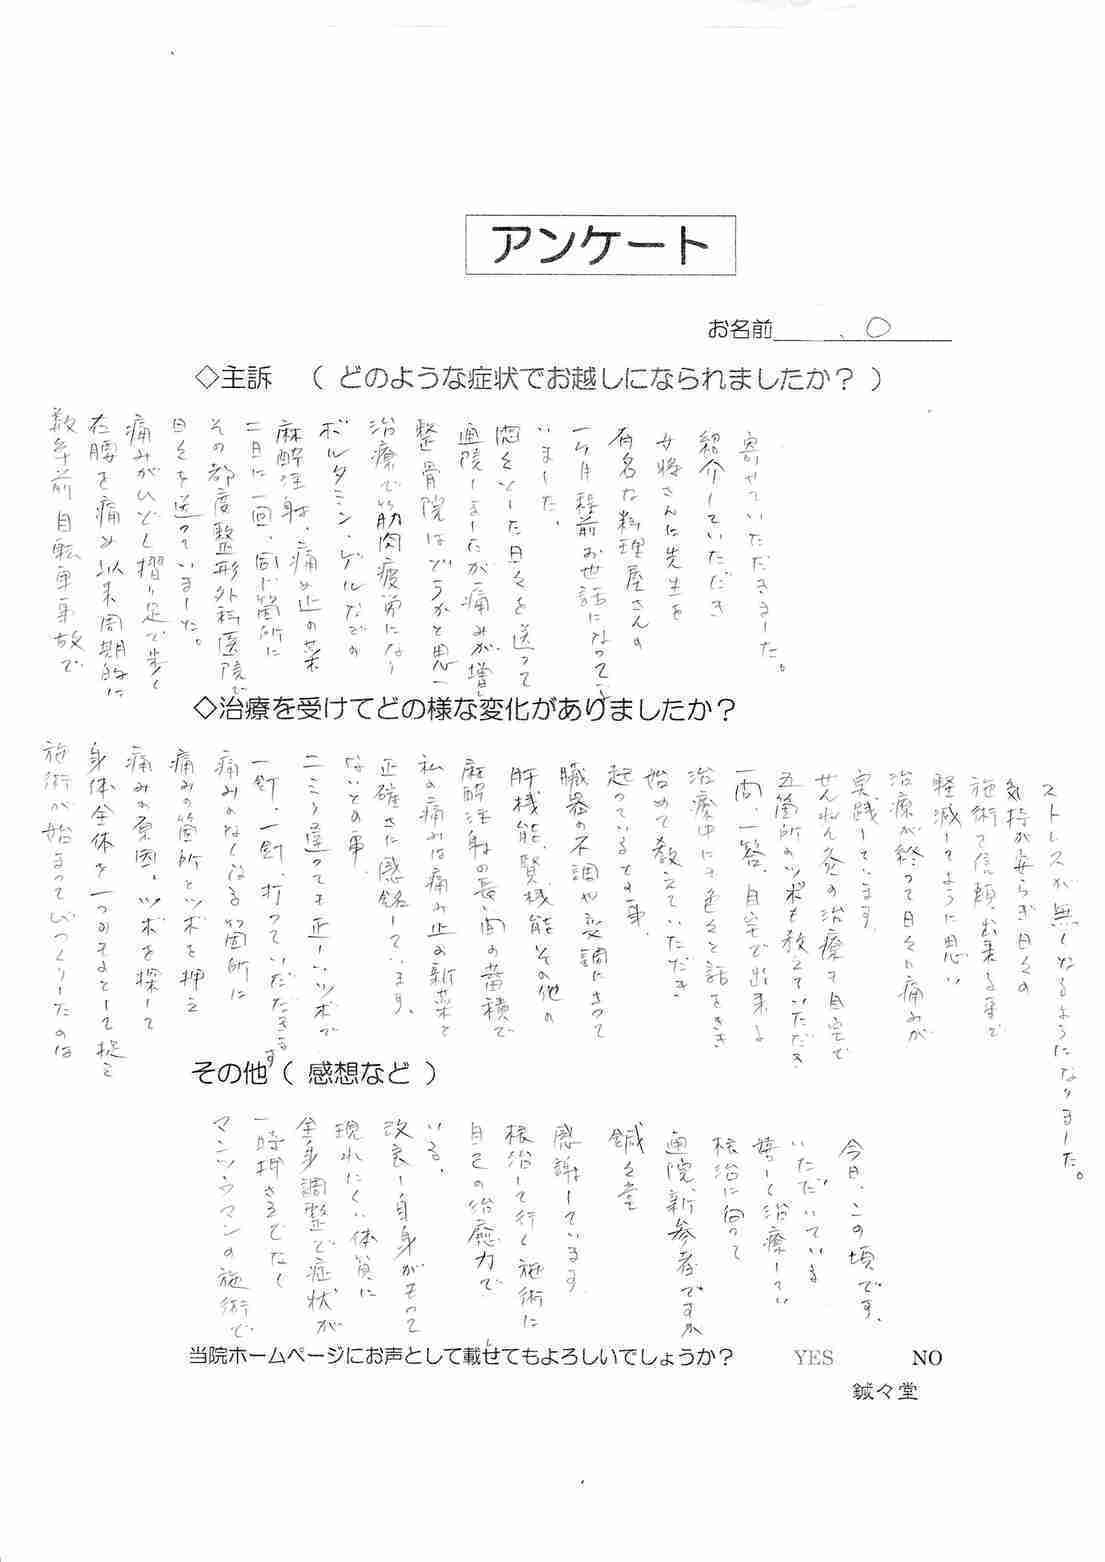 アンケート
お名前 、〇
◇主訴 （どのような症状でお越しになられましたか？）
数年前自転車事故で
左腰を痛め以来周期的に
痛みがひどく摺り足で歩く
日々を送っていました。
その都度整形外科医院で
二日に一回、同じ箇所に
麻酔注射、痛め止の薬
ボルタミン・ゲルなどの
治療で筋肉疲労になり
整骨院はどうかと思い
通院しましたが痛みが増し
悶々とした日々を送って
いました。
一ヶ月程前お世話になってる
有名な料理屋さんの
女将さんに先生を
紹介していただき
寄せていただきました。
◇治療を受けてどの様な変化がありましたか？
施術が始まってびっくりしたのは
身体全体を一つのものとして捉え
痛みの原因、ツボを探して
痛みの箇所とツボを押え
痛みのなくなる箇所に
一針、一針、打っていただきます
二ミリ違っても正しいツボで
ないとの事、
正確さに感銘しています。
私の痛みは痛み止の新薬と
麻酔注射の長い間の蓄積で
肝機能、腎機能その他の
臓器の不調や変調によって
起っているとの事、
始めて教えていただき
治療中にも色々と話をきき
一問、一答、自宅で出来る
五箇所のツボも教えていただき
せんねん灸の治療も自宅で
実践しています。
治療が終って日々に痛みが
軽減してように思い
施術で信頼出来る事で
気持が安らぎ日々の
ストレスが無くなるようになりました。
その他（ 感想など ）
マンツウマンの施術で
一時押さえでなく
全身調整で症状が
現れにくい体質に
改良し自身がもって
いる、
自己の治癒力で
根治して行く施術に
感謝しています
鍼々堂
通院、新参者ですが
根治に向って
嬉しく治療してい
いただいている
今日、この頃です、
当院ホームページにお声として載せてもよろしいでしょうか？ YES NO
鍼々堂